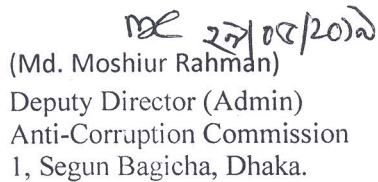 (Md. Moshiur Rahman)
Deputy Director (Admin)
Anti-Corruption Commission
1, Segun Bagicha, Dhaka.